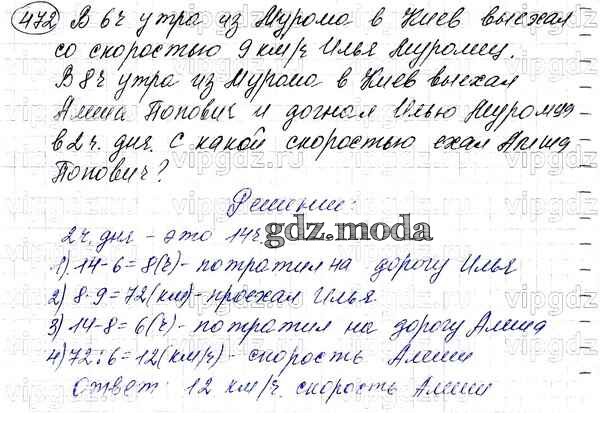 472 В 6ч утра из Мурома в Киев выехал
со скоростью 9 км/ч Илья Муромец.
В 8ч утра из Мурома в Киев выехал
Алёша Попович и догнал Илью Муромца
в 2 ч. дня. С какой скоростью ехал Алёша
Попович?
Решение:
2ч. дня - это 14ч.
gdz.moda
1) 14-6=8(ч)- потратил на дорогу Илья
2) 8·9=72(км)- проехал Илья.
3) 14-8=6(ч)- потратил на дорогу Алёша
4) 72:6=12(км/ч)- скорость Алёши
Ответ: 12 км/ч. скорость Алёши